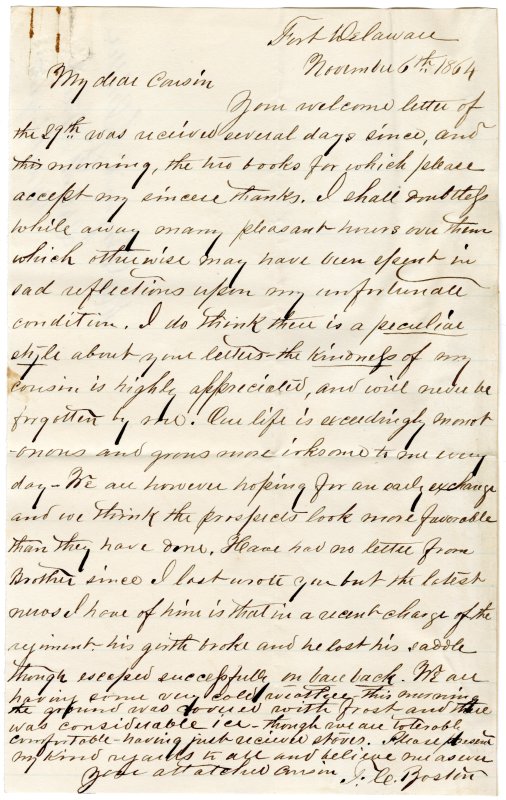 Fort Delaware
November 6th 1864
My dear Cousin
Your welcome letter of
the 29th was received several days since, and
this morning, the two books for which please
accept my sincere thanks. I shall doubtless
while away many pleasant hours over them
which otherwise may have been spent in
sad reflections upon my unfortunate
condition. I do think there is a peculiar
style about your letters - the kindness of my
cousin is highly appreciated, and will never be
forgotten by me. Our life is exceedingly monot
-onous and grows more irksome to me every
day - We are however hoping for an early exchange
and we think the prospects look more favorable
than they have done, Have had no letter from
Brother since I last wrote you but the latest
news I have of him is that in a recent charge of the
regiment - his girth broke and he lost his saddle
though escaped successfully on bare back. We are
having some very cold weather - this morning
the ground was covered with frost and there
was considerable ice - though we are tolerably
comfortable - having just received stoves. Please present
my kind regards to all and believe me as ever
Your attatched Cousin J. C. Boston